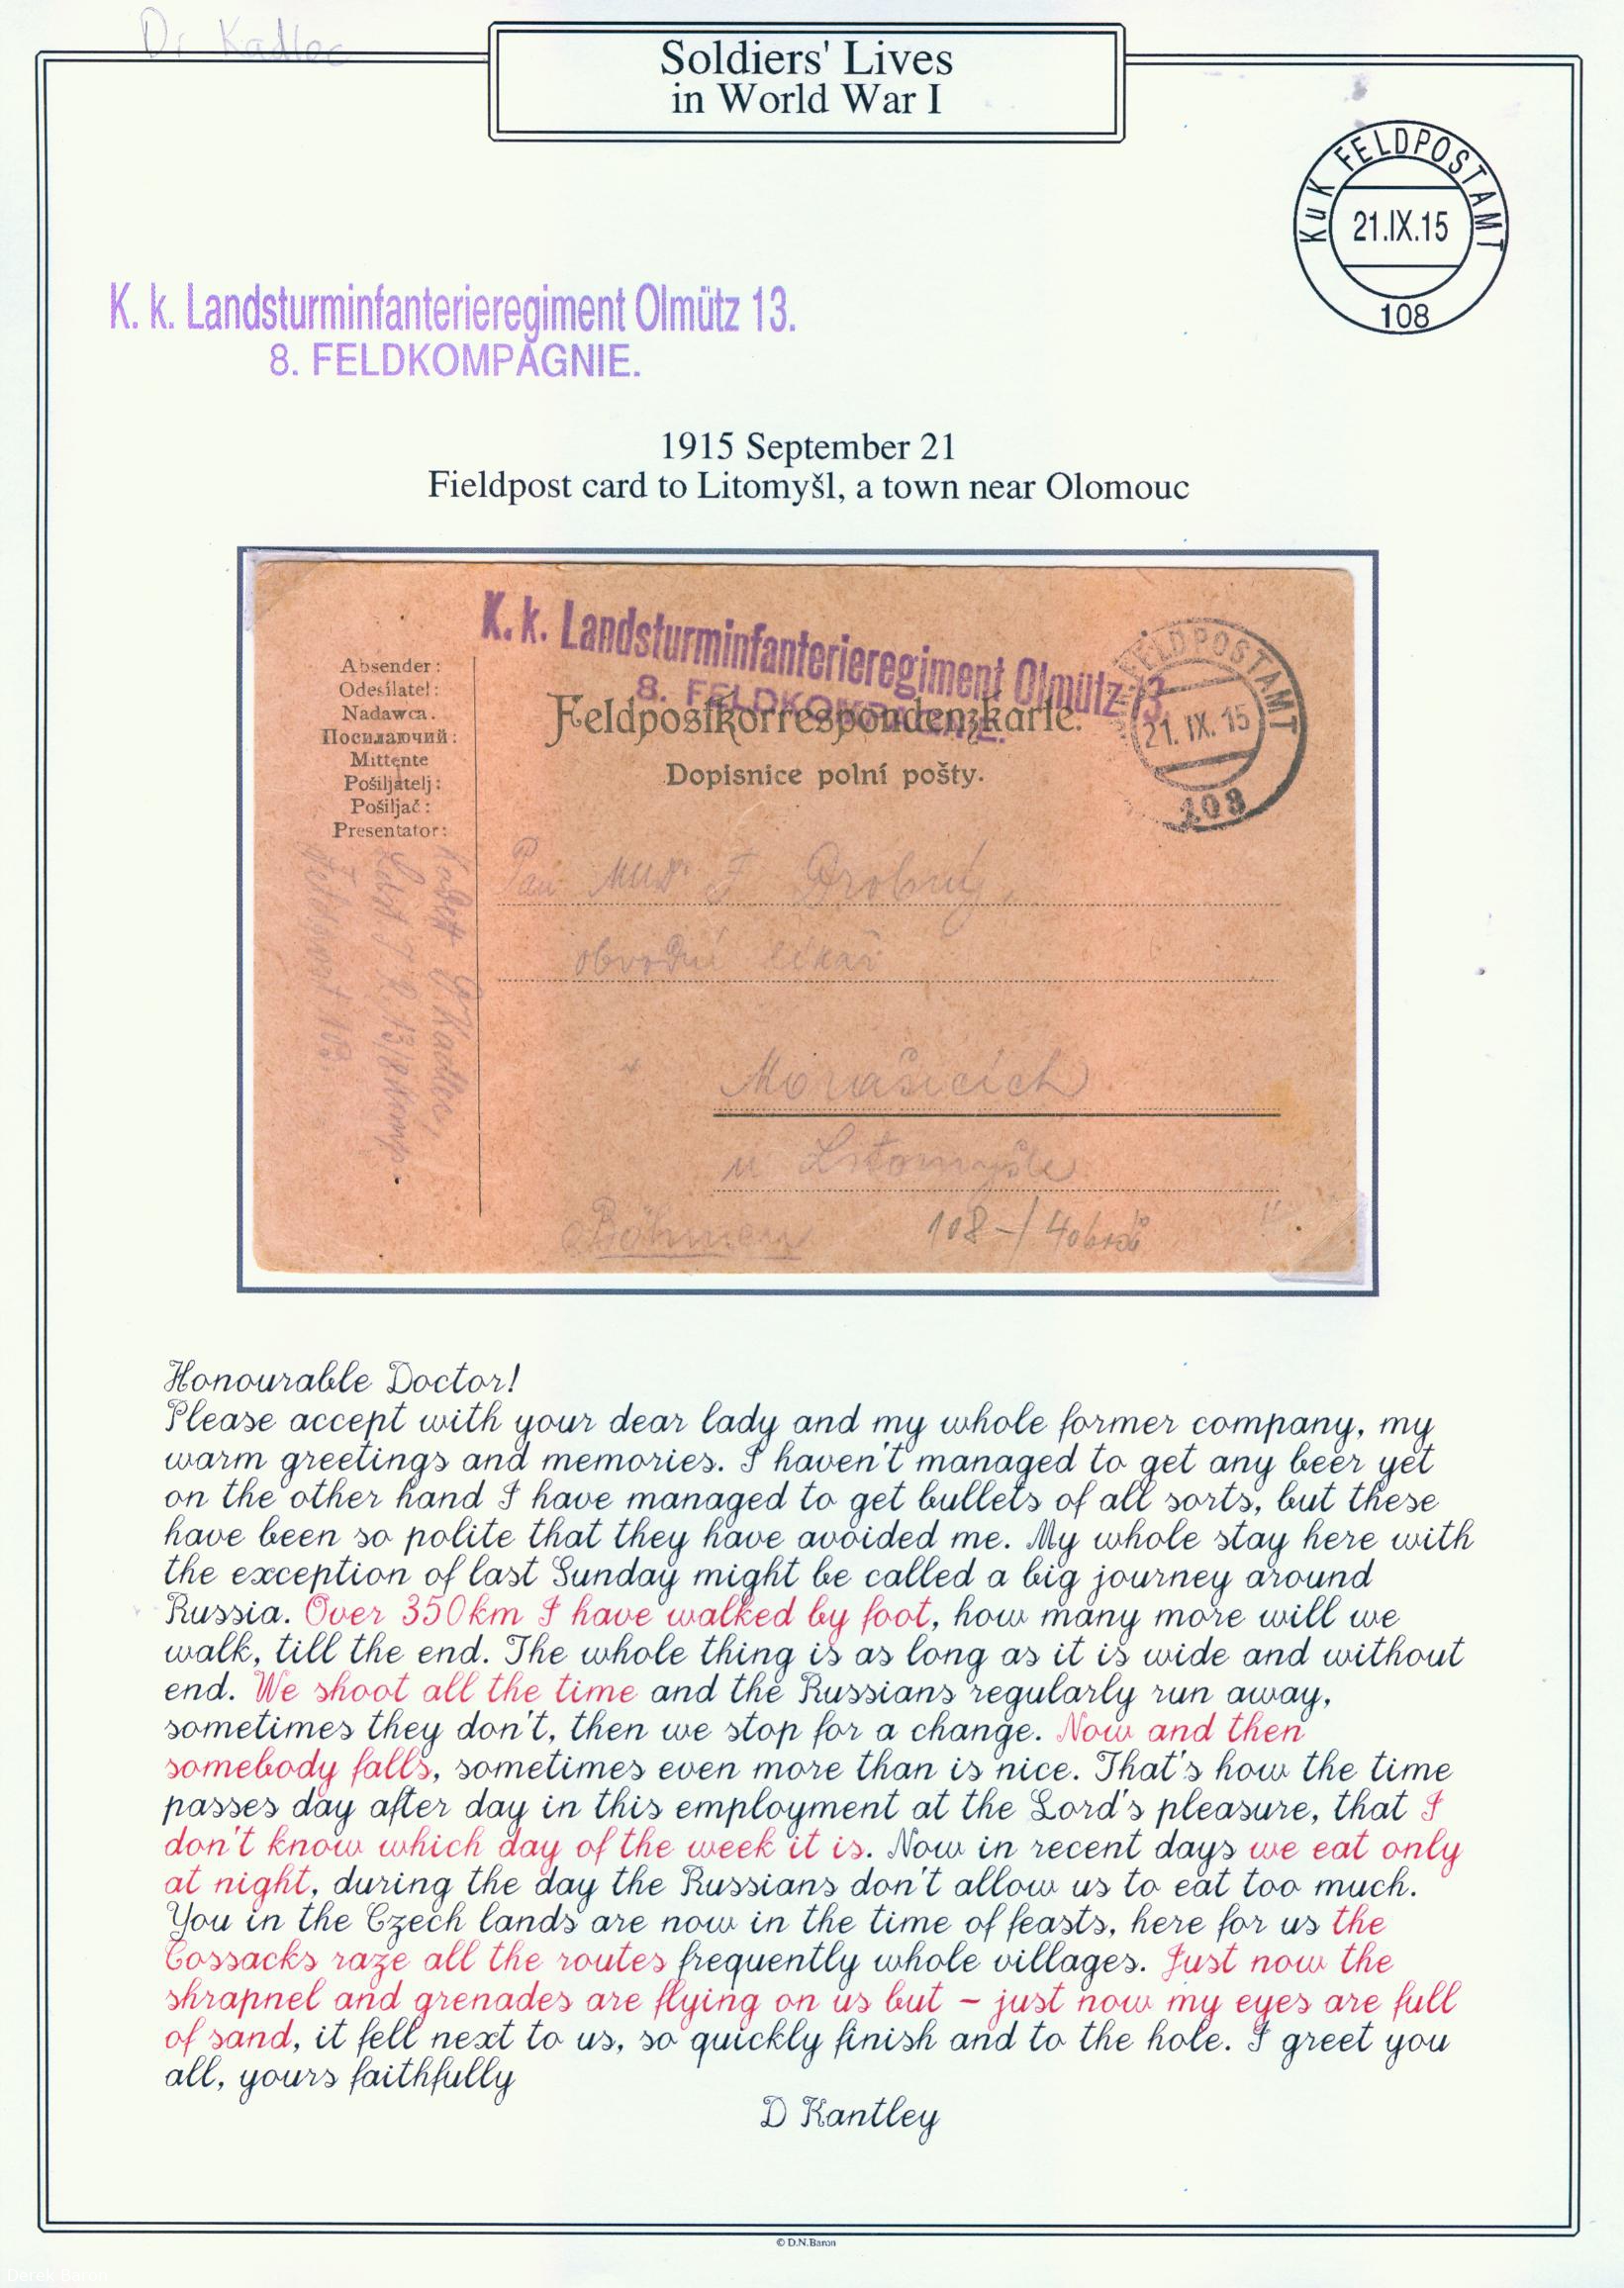 Dr Kadlec
Soldiers' Lives
in World War I
KuK FELDPOSTAMT
21.IX.15
108
K. k. Landsturminfanterieregiment Olmütz 13.
8. FELDKOMPAGNIE.
1915 September 21
Fieldpost card to Litomyšl, a town near Olomouc
K. k. Landsturminfanterieregiment Olmütz 13.
8. FELDKOMPAGNIE.
FELDPOSTAMT
21. IX. 15
108
Feldpostkorrespondenzkarte.
Dopisnice polní pošty.
Absender:
Odesílatel:
Nadawca.
Посилаючий:
Mittente
Pošiljatelj:
Pošiljač:
Presentator:
Kadett Kadlec,
Feldpost 108.
Pan MUDr F Drobný,
obvodní lékař
Morašicích
u Litomyšle
Böhmen
108-/
Honourable Doctor!
Please accept with your dear lady and my whole former company, my
warm greetings and memories. I haven't managed to get any beer yet
on the other hand I have managed to get bullets of all sorts, but these
have been so polite that they have avoided me. My whole stay here with
the exception of last Sunday might be called a big journey around
Russia. Over 350km I have walked by foot, how many more will we
walk, till the end. The whole thing is as long as it is wide and without
end. We shoot all the time and the Russians regularly run away,
sometimes they don't, then we stop for a change. Now and then
somebody falls, sometimes even more than is nice. That's how the time
passes day after day in this employment at the Lord's pleasure, that I
don't know which day of the week it is. Now in recent days we eat only
at night, during the day the Russians don't allow us to eat too much.
You in the Czech lands are now in the time of feasts, here for us the
Cossacks raze all the routes frequently whole villages. Just now the
shrapnel and grenades are flying on us but – just now my eyes are full
of sand, it fell next to us, so quickly finish and to the hole. I greet you
all, yours faithfully
D Kantley
© D.N.Baron
Derek Baron